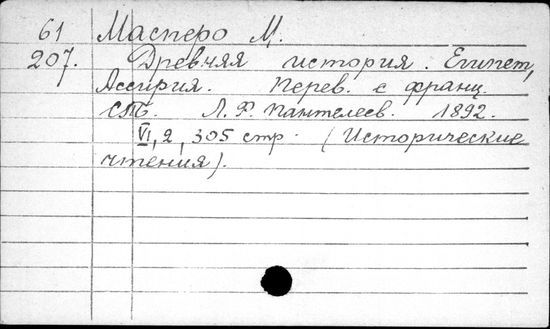 61 Масперо М.
207. Древняя история. Египет,
Ассирия. Перев. с франц.
СПБ. Л. Ф. Пантелеев. 1892.
VI, 2, 305 стр. (Исторические
чтения).